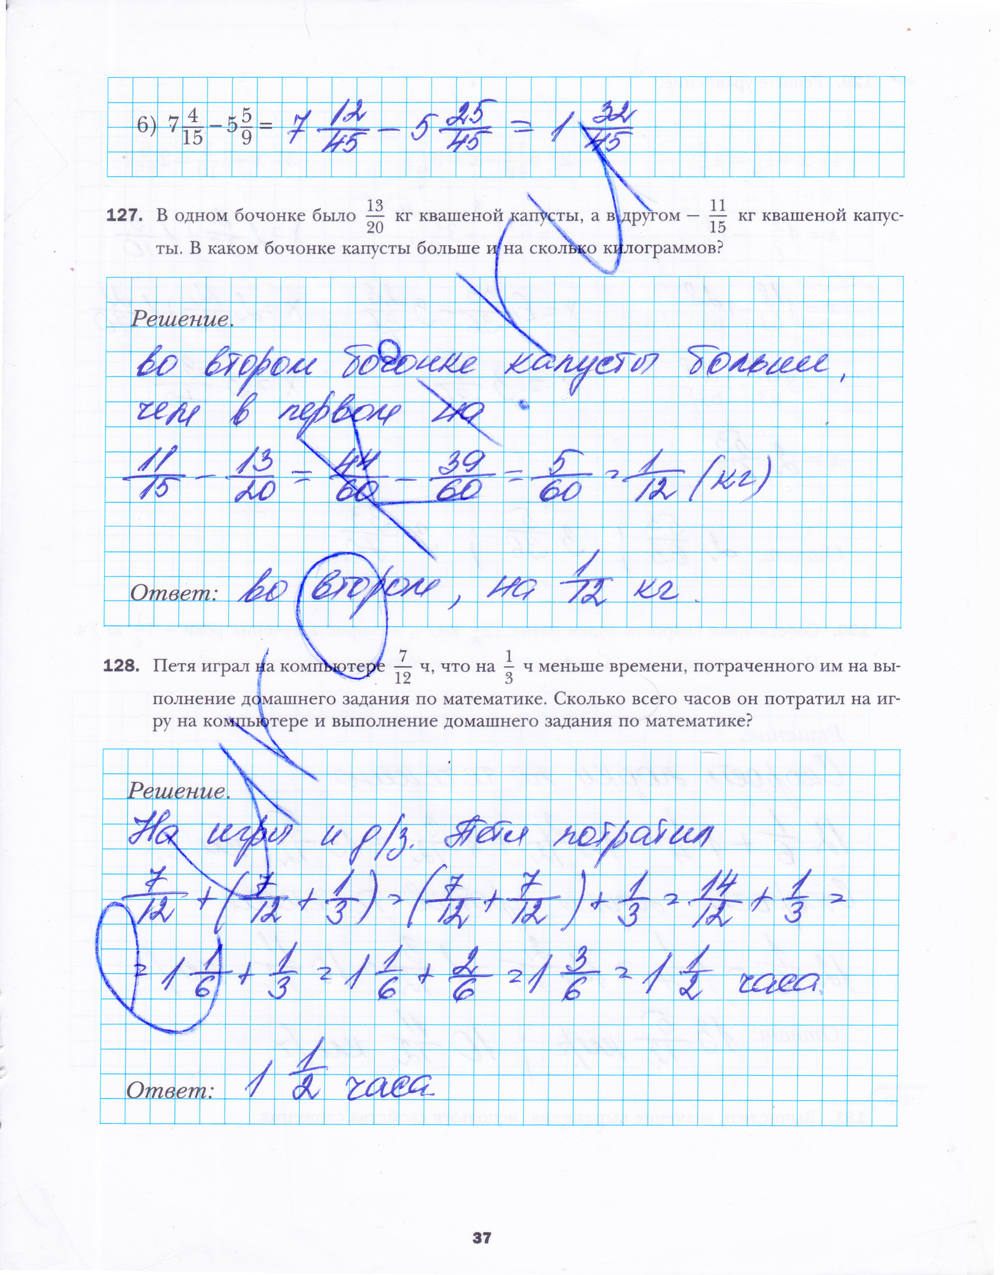 6) 7 4/15 − 5 5/9 = 7 12/45 − 5 25/45 = 1 32/45
127. В одном бочонке было 13/20 кг квашеной капусты, а в другом — 11/15 кг квашеной капус-
ты. В каком бочонке капусты больше и на сколько килограммов?
Решение.
во втором бочонке капусты больше,
чем в первом на
11/15 − 13/20 = 44/60 − 39/60 = 5/60 = 1/12 (кг)
Ответ: во втором, на 1/12 кг.
128. Петя играл на компьютере 7/12 ч, что на 1/3 ч меньше времени, потраченного им на вы-
полнение домашнего задания по математике. Сколько всего часов он потратил на иг-
ру на компьютере и выполнение домашнего задания по математике?
Решение.
На игры и д/з. Петя потратил
7/12 + (7/12 + 1/3) = (7/12 + 7/12) + 1/3 = 14/12 + 1/3 =
= 1 1/6 + 1/3 = 1 1/6 + 2/6 = 1 3/6 = 1 1/2 часа.
Ответ: 1 1/2 часа.
37